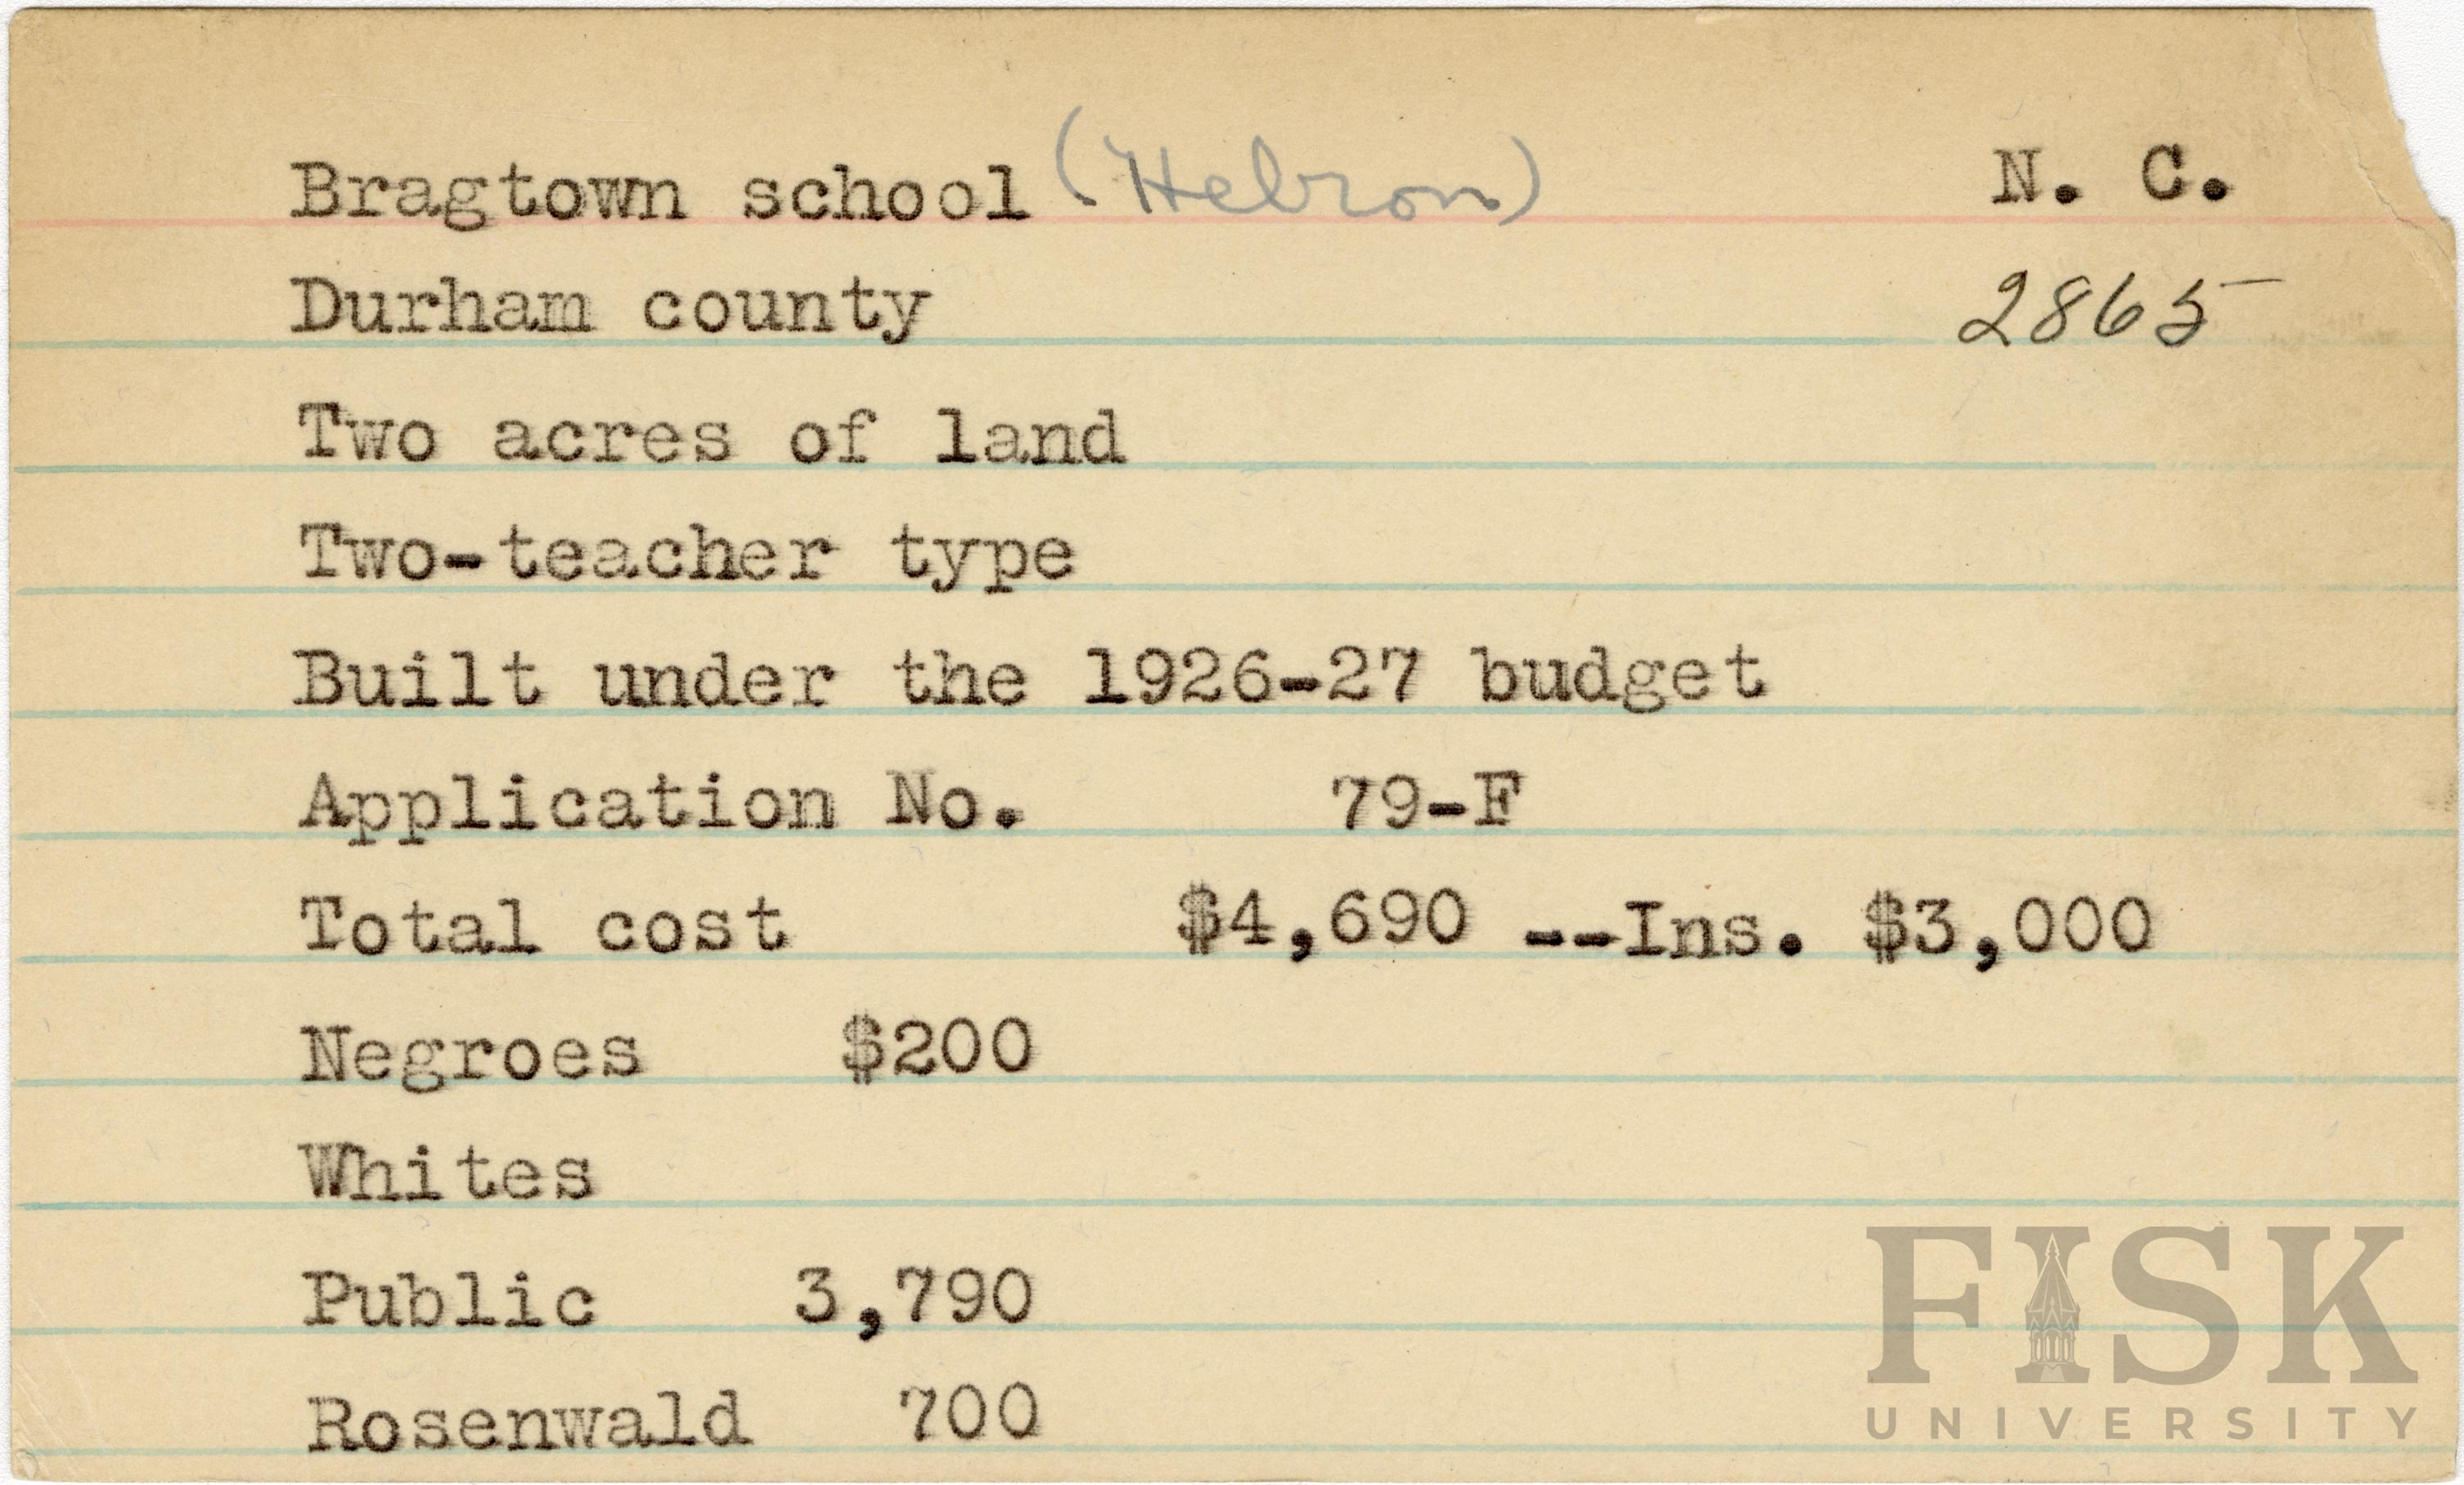 Bragtown school (Hebron) N. C.
Durham county 2865
Two acres of land
Two-teacher type
Built under the 1926-27 budget
Application No. 79-F
Total cost $4,690 --Ins. $3,000
Negroes $200
Whites
Public 3,790
Rosenwald 700
FISK
UNIVERSITY